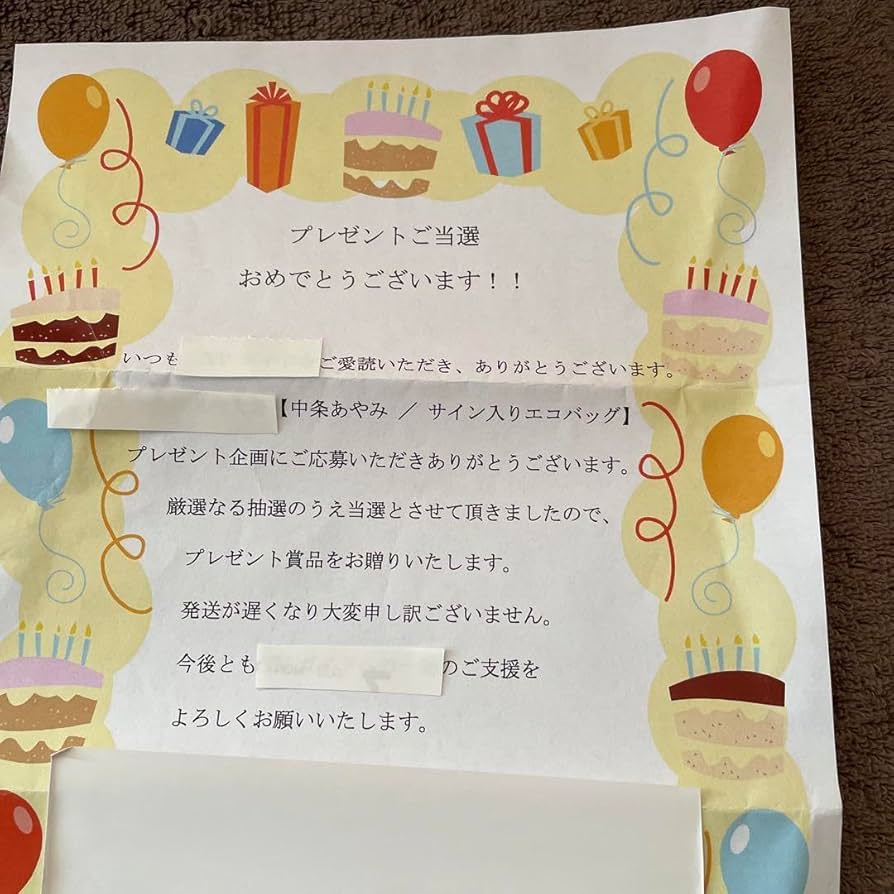 プレゼントご当選
おめでとうございます！！
いつも ご愛読いただき、ありがとうございます。
【中条あやみ ／ サイン入りエコバッグ】
プレゼント企画にご応募いただきありがとうございます。
厳選なる抽選のうえ当選とさせて頂きましたので、
プレゼント賞品をお贈りいたします。
発送が遅くなり大変申し訳ございません。
今後とも のご支援を
よろしくお願いいたします。